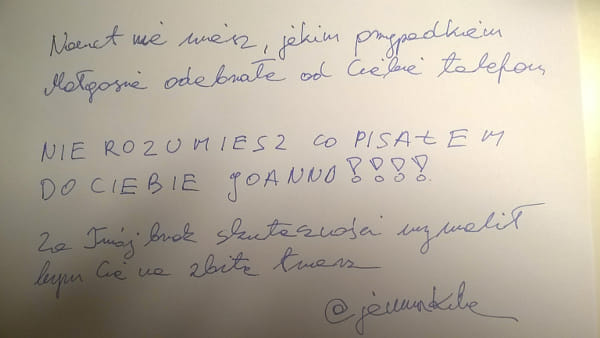 Nawet nie wiesz, jakim przypadkiem
Małgosia odebrała od Ciebie telefon
NIE ROZUMIESZ CO PISAŁEM
DO CIEBIE JOANNO!!!!
Za Twój brak skuteczności wywalił
bym Cię na zbitą twarz